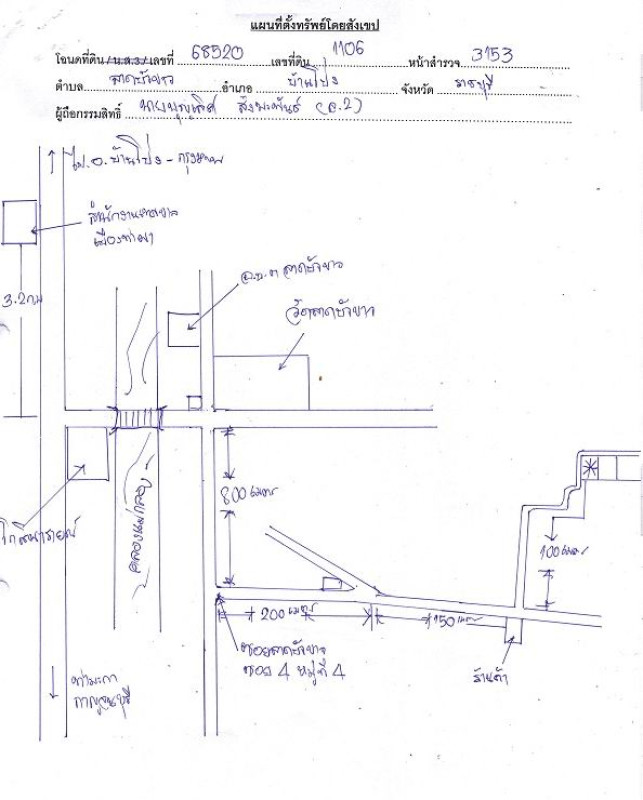 แผนที่ตั้งทรัพย์โดยสังเขป
โฉนดที่ดิน/น.ส.3/เลขที่ 68520 เลขที่ดิน 1106 หน้าสำรวจ 3153
ตำบล ลาดบัวขาว อำเภอ บ้านโป่ง จังหวัด ราชบุรี
ผู้ถือกรรมสิทธิ์ นายบุญเลิศ (จ.2)
ไป.อ.บ้านโป่ง - กรุงเทพ
สำนักงานเทศบาล
เมืองท่าผา
3.2กม
อ.บ.ต ลาดบัวขาว
วัดลาดบัวขาว
800 เมตร
คลองแม่กลอง
100 เมตร
200 เมตร
150 เมตร
ซอยลาดบัวขาว
ซอย 4 หมู่ที่ 4
ร้านค้า
ท่ามะกา
กาญจนบุรี